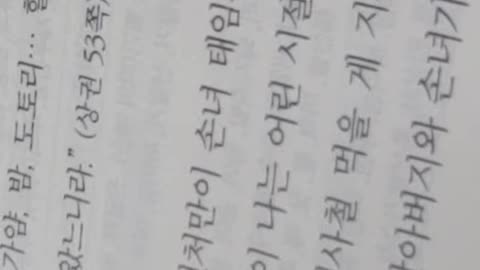 가얌, 밤, 도토리…
았느니라.” (상권 53쪽)
처만이 손녀 태임
이 나는 어린 시절
사철 먹을 게 지
아버지와 손녀가